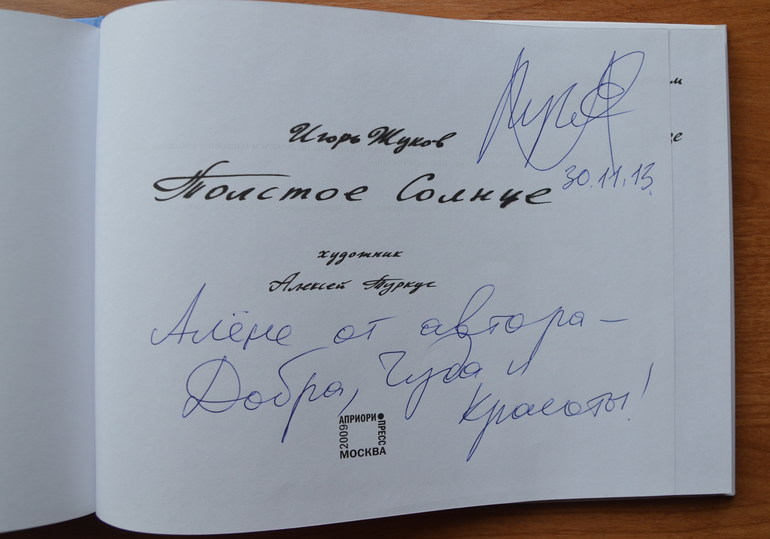 Игорь Жуков
30.11.13.
Толстое Солнце
художник
Алексей Туркус
Алёне от автора –
Добра, Чуда и
Красоты!
АПРИОРИ
ПРЕСС
2009
МОСКВА
м
це